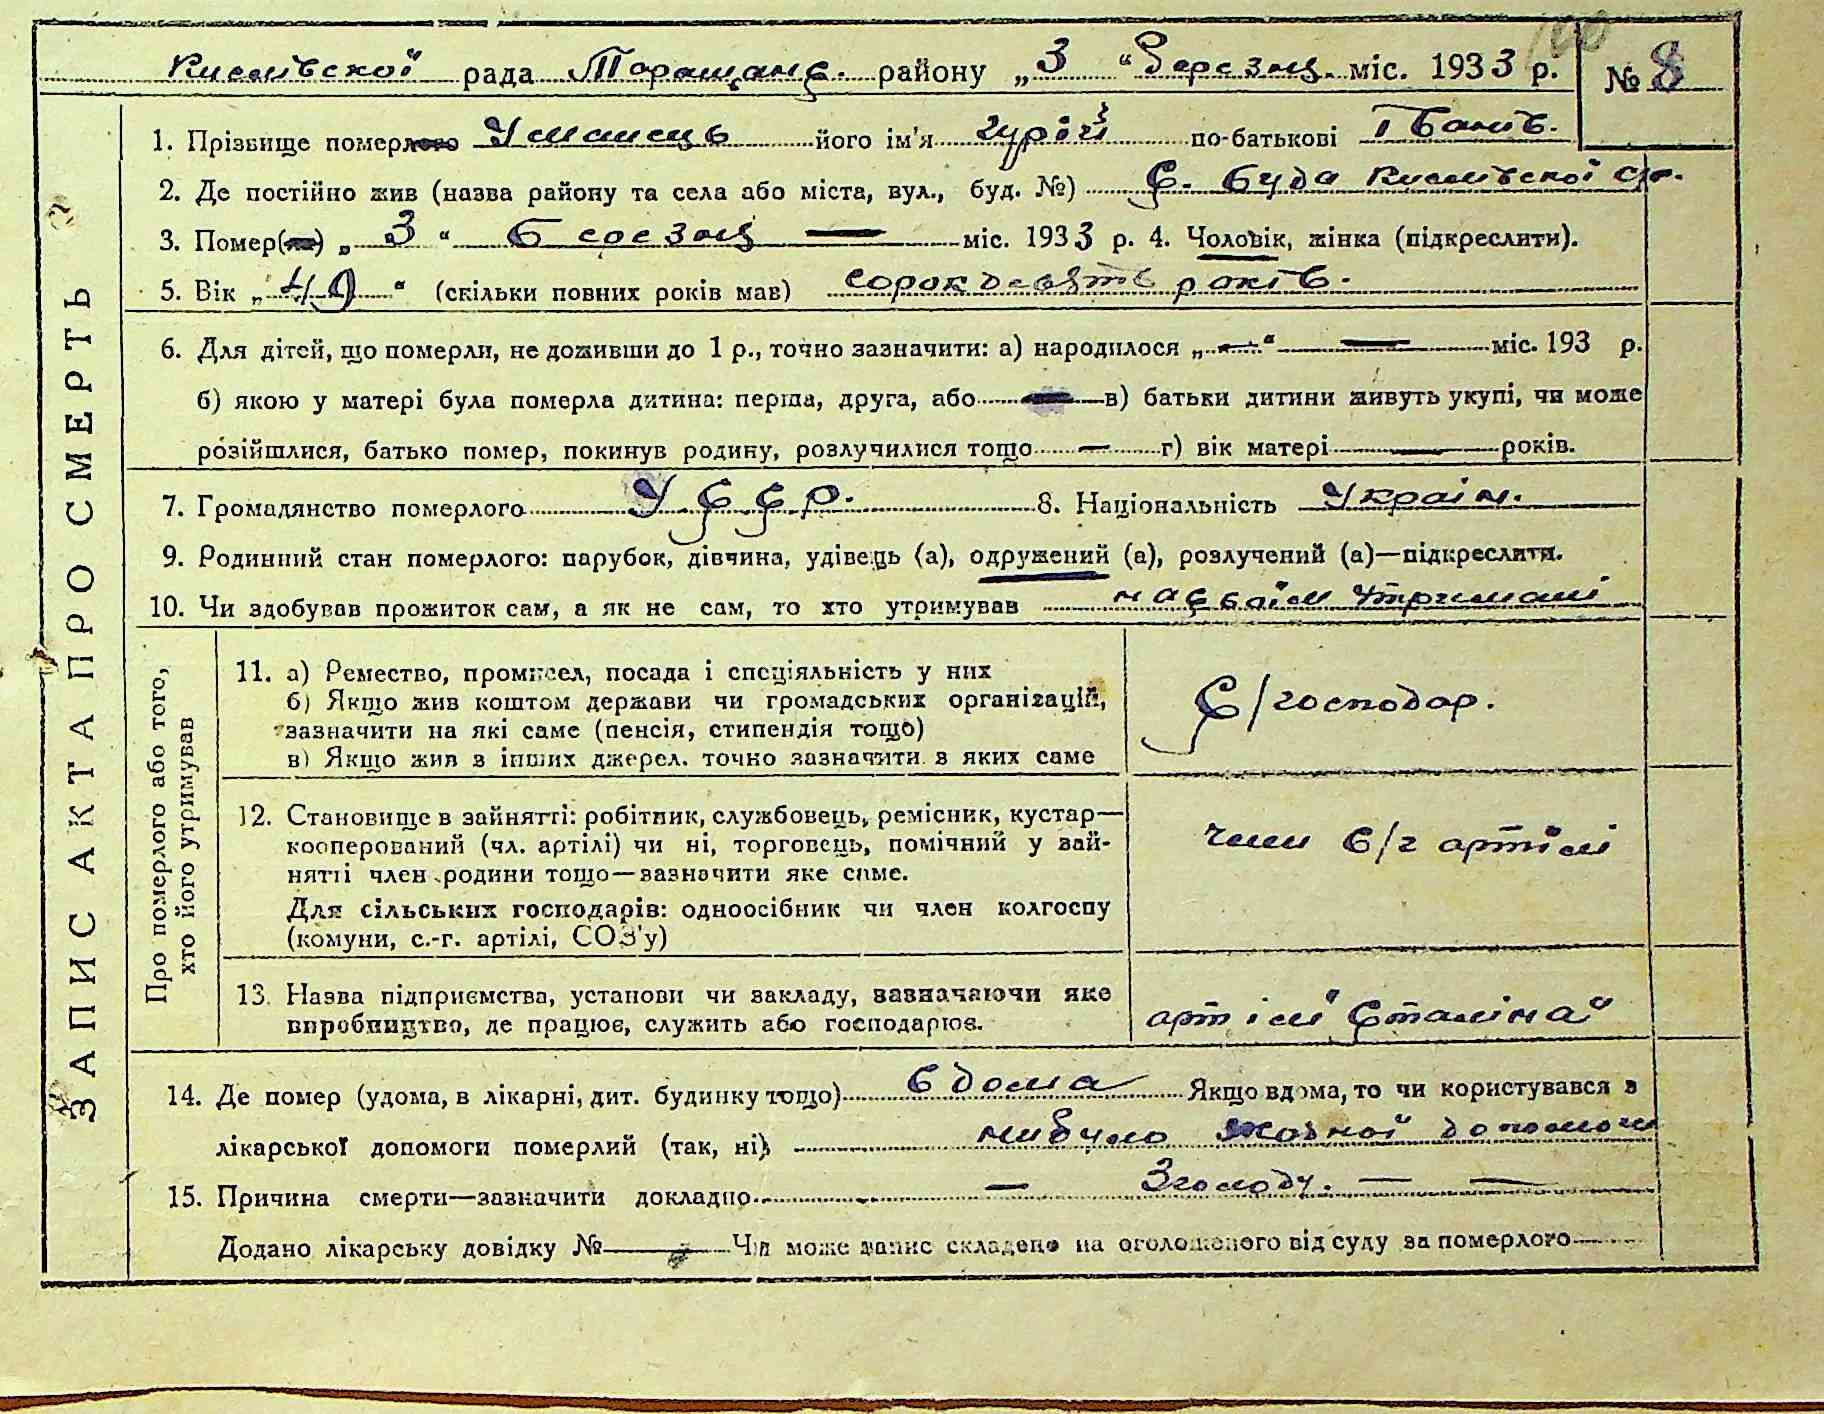 Кислівської рада Таращанс. району „3“ березня міс. 1933 р. № 8
ЗАПИС АКТА ПРО СМЕРТЬ
1. Прізвище померлого Уманець його ім'я Гурій по-батькові Іванів.
2. Де постійно жив (назва району та села або міста, вул., буд. №) С. Буда Кислівської с/р.
3. Помер(ла) „3“ березня — міс. 1933 р. 4. Чоловік, жінка (підкреслити).
5. Вік „49“ (скільки повних років мав) сорок девять років.
6. Для дітей, що померли, не доживши до 1 р., точно зазначити: а) народилося „—“ — міс. 193 р.
б) якою у матері була померла дитина: перша, друга, або — в) батьки дитини живуть укупі, чи може
розійшлися, батько помер, покинув родину, розлучилися тощо — г) вік матері — років.
7. Громадянство померлого УССР. 8. Національність Україн.
9. Родинний стан померлого: парубок, дівчина, удівець (а), одружений (а), розлучений (а)—підкреслити.
10. Чи здобував прожиток сам, а як не сам, то хто утримував на своїм утримані
Про померлого або того,
хто його утримував
11. а) Ремество, промисел, посада і спеціяльність у них
б) Якщо жив коштом держави чи громадських організацій,
зазначити на які саме (пенсія, стипендія тощо)
в) Якщо жив з інших джерел. точно зазначити з яких саме
С/господар.
12. Становище в зайнятті: робітник, службовець, ремісник, кустар—
кооперований (чл. артілі) чи ні, торговець, помічний у зай-
нятті член родини тощо—зазначити яке саме.
Для сільських господарів: одноосібник чи член колгоспу
(комуни, с.-г. артілі, СОЗ'у)
член с/г артілі
13. Назва підприємства, установи чи закладу, зазначаючи яке
виробництво, де працює, служить або господарює.
артіль „Сталіна“
14. Де помер (удома, в лікарні, дит. будинку тощо) вдома Якщо вдома, то чи користувався з
лікарської допомоги померлий (так, ні) небуло жодної допомоги
15. Причина смерти—зазначити докладно — Зголоду. — —
Додано лікарську довідку № — Чи може запис складено на оголошеного від суду за померлого